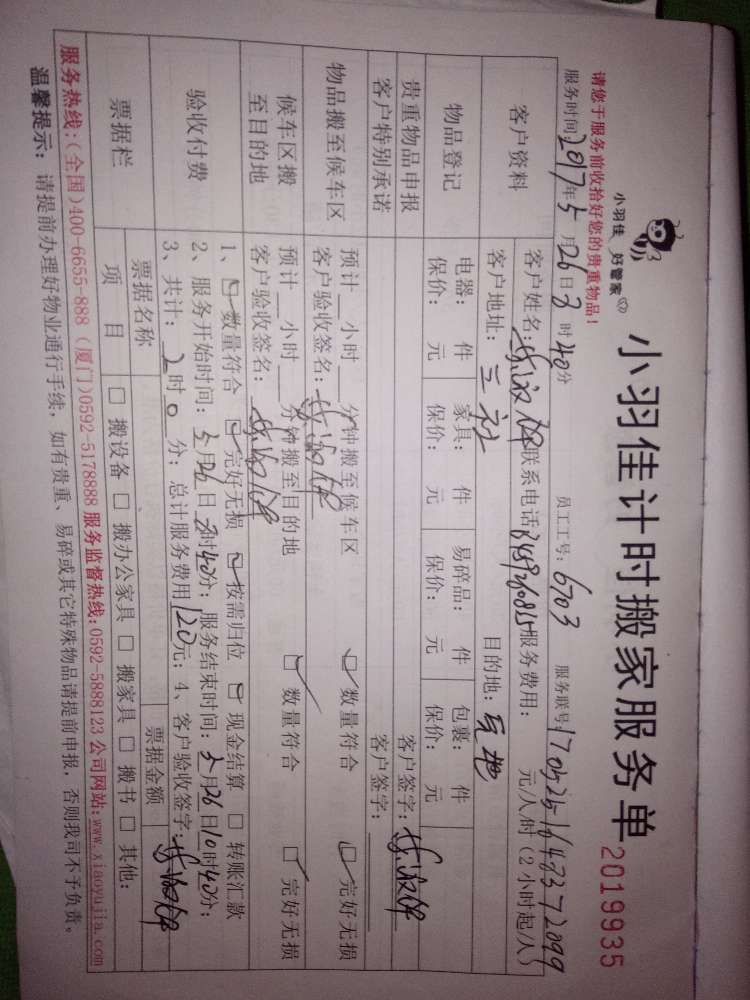 小羽佳 好管家
小羽佳计时搬家服务单 2019935
请您于服务前收拾好您的贵重物品！
服务时间:2017年5月26日8时40分 员工工号:6703 服务联号:1705251648372099
客户资料 客户姓名: 联系电话 服务费用: 元/人/时（2小时起/人）
客户地址: 三社 目的地:
物品登记 电器: 件 家具: 件 易碎品: 件 包裹: 件
保价: 元 保价: 元 保价: 元 保价: 元
贵重物品申报 客户签字:
客户特别承诺 客户签字:
物品搬至候车区 预计 小时 分钟搬至候车区 数量符合 完好无损
客户验收签名:
候车区搬至目的地 预计 小时 分钟搬至目的地 数量符合 完好无损
客户验收签名:
验收付费 1、 数量符合 完好无损 按需归位 现金结算 转账汇款
2、服务开始时间: 5月26日8时40分; 服务结束时间: 5月26日10时40分;
3、共计: 2时0分; 总计服务费用120元; 4、客户验收签字:
票据栏 票据名称 票据金额
项目 搬设备 搬办公家具 搬家具 搬书 其他:
服务热线:(全国)400-6655-888 (厦门)0592-5178888 服务监督热线:0592-5888123 公司网站:www.xiaoyujia.com
温馨提示: 请提前办理好物业通行手续, 如有贵重、易碎或其它特殊物品请提前申报, 否则我司不予负责。